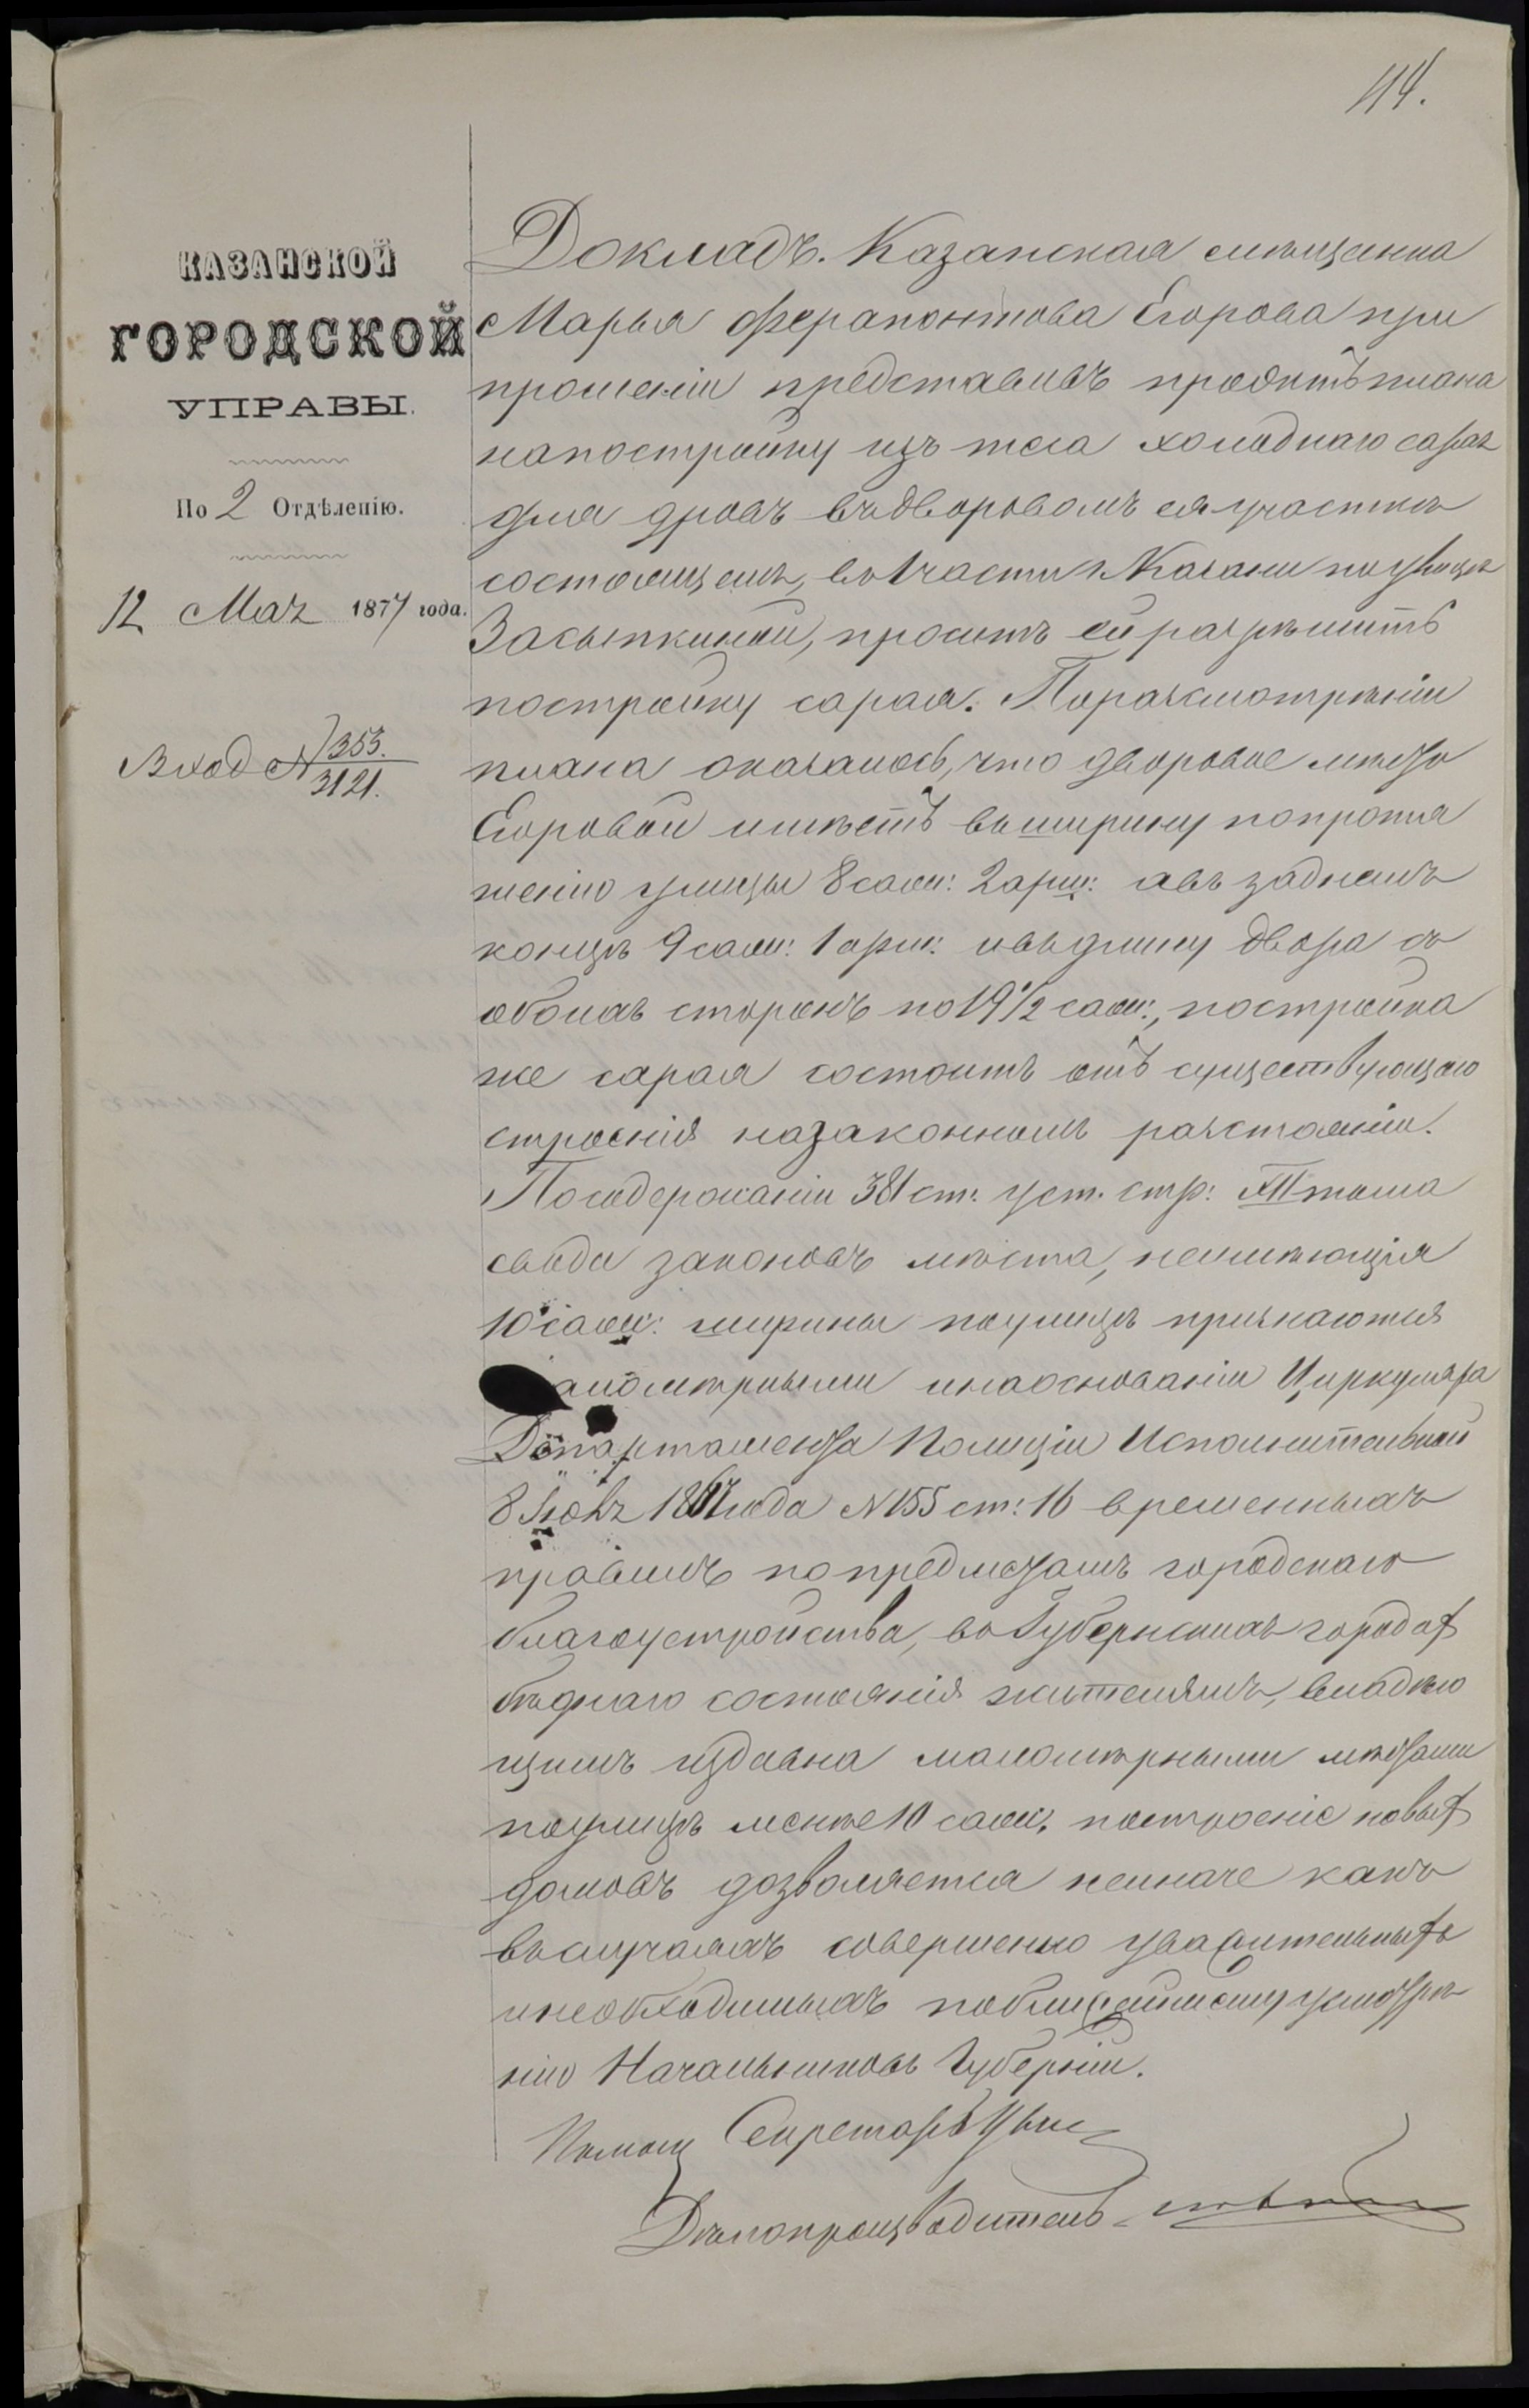 114.
КАЗАНСКОЙ
ГОРОДСКОЙ
УПРАВЫ.
По 2 Отдѣленію.
12 Мая 1877 года.
Вход № 353.
3121.
Докладъ. Казанская мѣщанка
Марья Ферапонтова Егорова при
прошеніи представивъ проэктъ плана
на постройку изъ теса холоднаго сарая
для дровъ въ дворовомъ ея участкѣ
состоящемъ, во 2 части г. Казани по улицѣ
Засыпкиной, проситъ ей разрѣшить
постройку сарая. По разсмотрѣніи
плана оказалось, что дворовое мѣсто
Егоровой имѣетъ въ ширину по протя
женію улицы 8 саж: 2 арш: а въ заднемъ
концѣ 9 саж: 1 арш: и въ длину двора съ
обоихъ сторонъ по 19 1/2 саж:, постройка
же сарая состоитъ отъ существующаго
строенія на законномъ разстояніи.
По содержанію 381 ст: уст. стр: XII тома
свода законовъ мѣста, неимѣющія
10 саж: ширины по улицѣ признаются
маломѣрными и на основаніи Циркуляра
Департамента Полиціи Исполнительной
8 Іюня года № 155 ст: 16 временныхъ
правилъ по предметамъ городскаго
благоустройства, въ Губернскихъ городах
бѣднаго состоянія жителямъ, владѣю
щимъ издавна маломѣрными мѣстами
по улицѣ менѣе 10 саж. построеніе новых
домовъ дозволяется не иначе какъ
въ случаяхъ совершенно уважительныхъ
и необходимыхъ по ближайшему усмотрѣ
нію Начальниковъ Губерній.
Помощ Секретаря
Дѣлопроизводитель